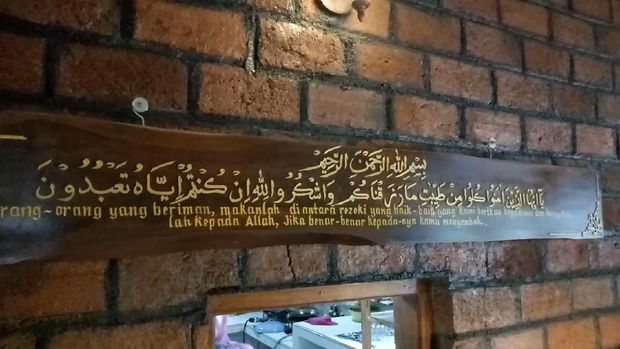 بِسْمِ اللهِ الرَّحْمٰنِ الرَّحِيْمِ
يٰاَيُّهَا الَّذِيْنَ اٰمَنُوْا كُلُوْا مِنْ طَيِّبٰتِ مَا رَزَقْنَاكُمْ وَاشْكُرُوْا لِلّٰهِ اِنْ كُنْتُمْ اِيَّاهُ تَعْبُدُوْنَ
rang-orang yang beriman, makanlah diantara rezeki yang baik-baik yang kami berikan kepadamu dan
lah kepada Allah, Jika benar-benar kepada-nya kamu menyembah.